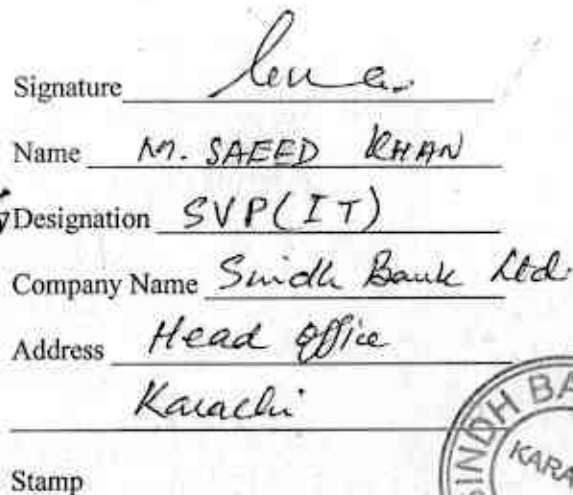 Signature
Name M. SAEED KHAN
Designation SVP(IT)
Company Name Sindh Bank Ltd.
Address Head Office
Karachi
Stamp
SINDH BA
KARA